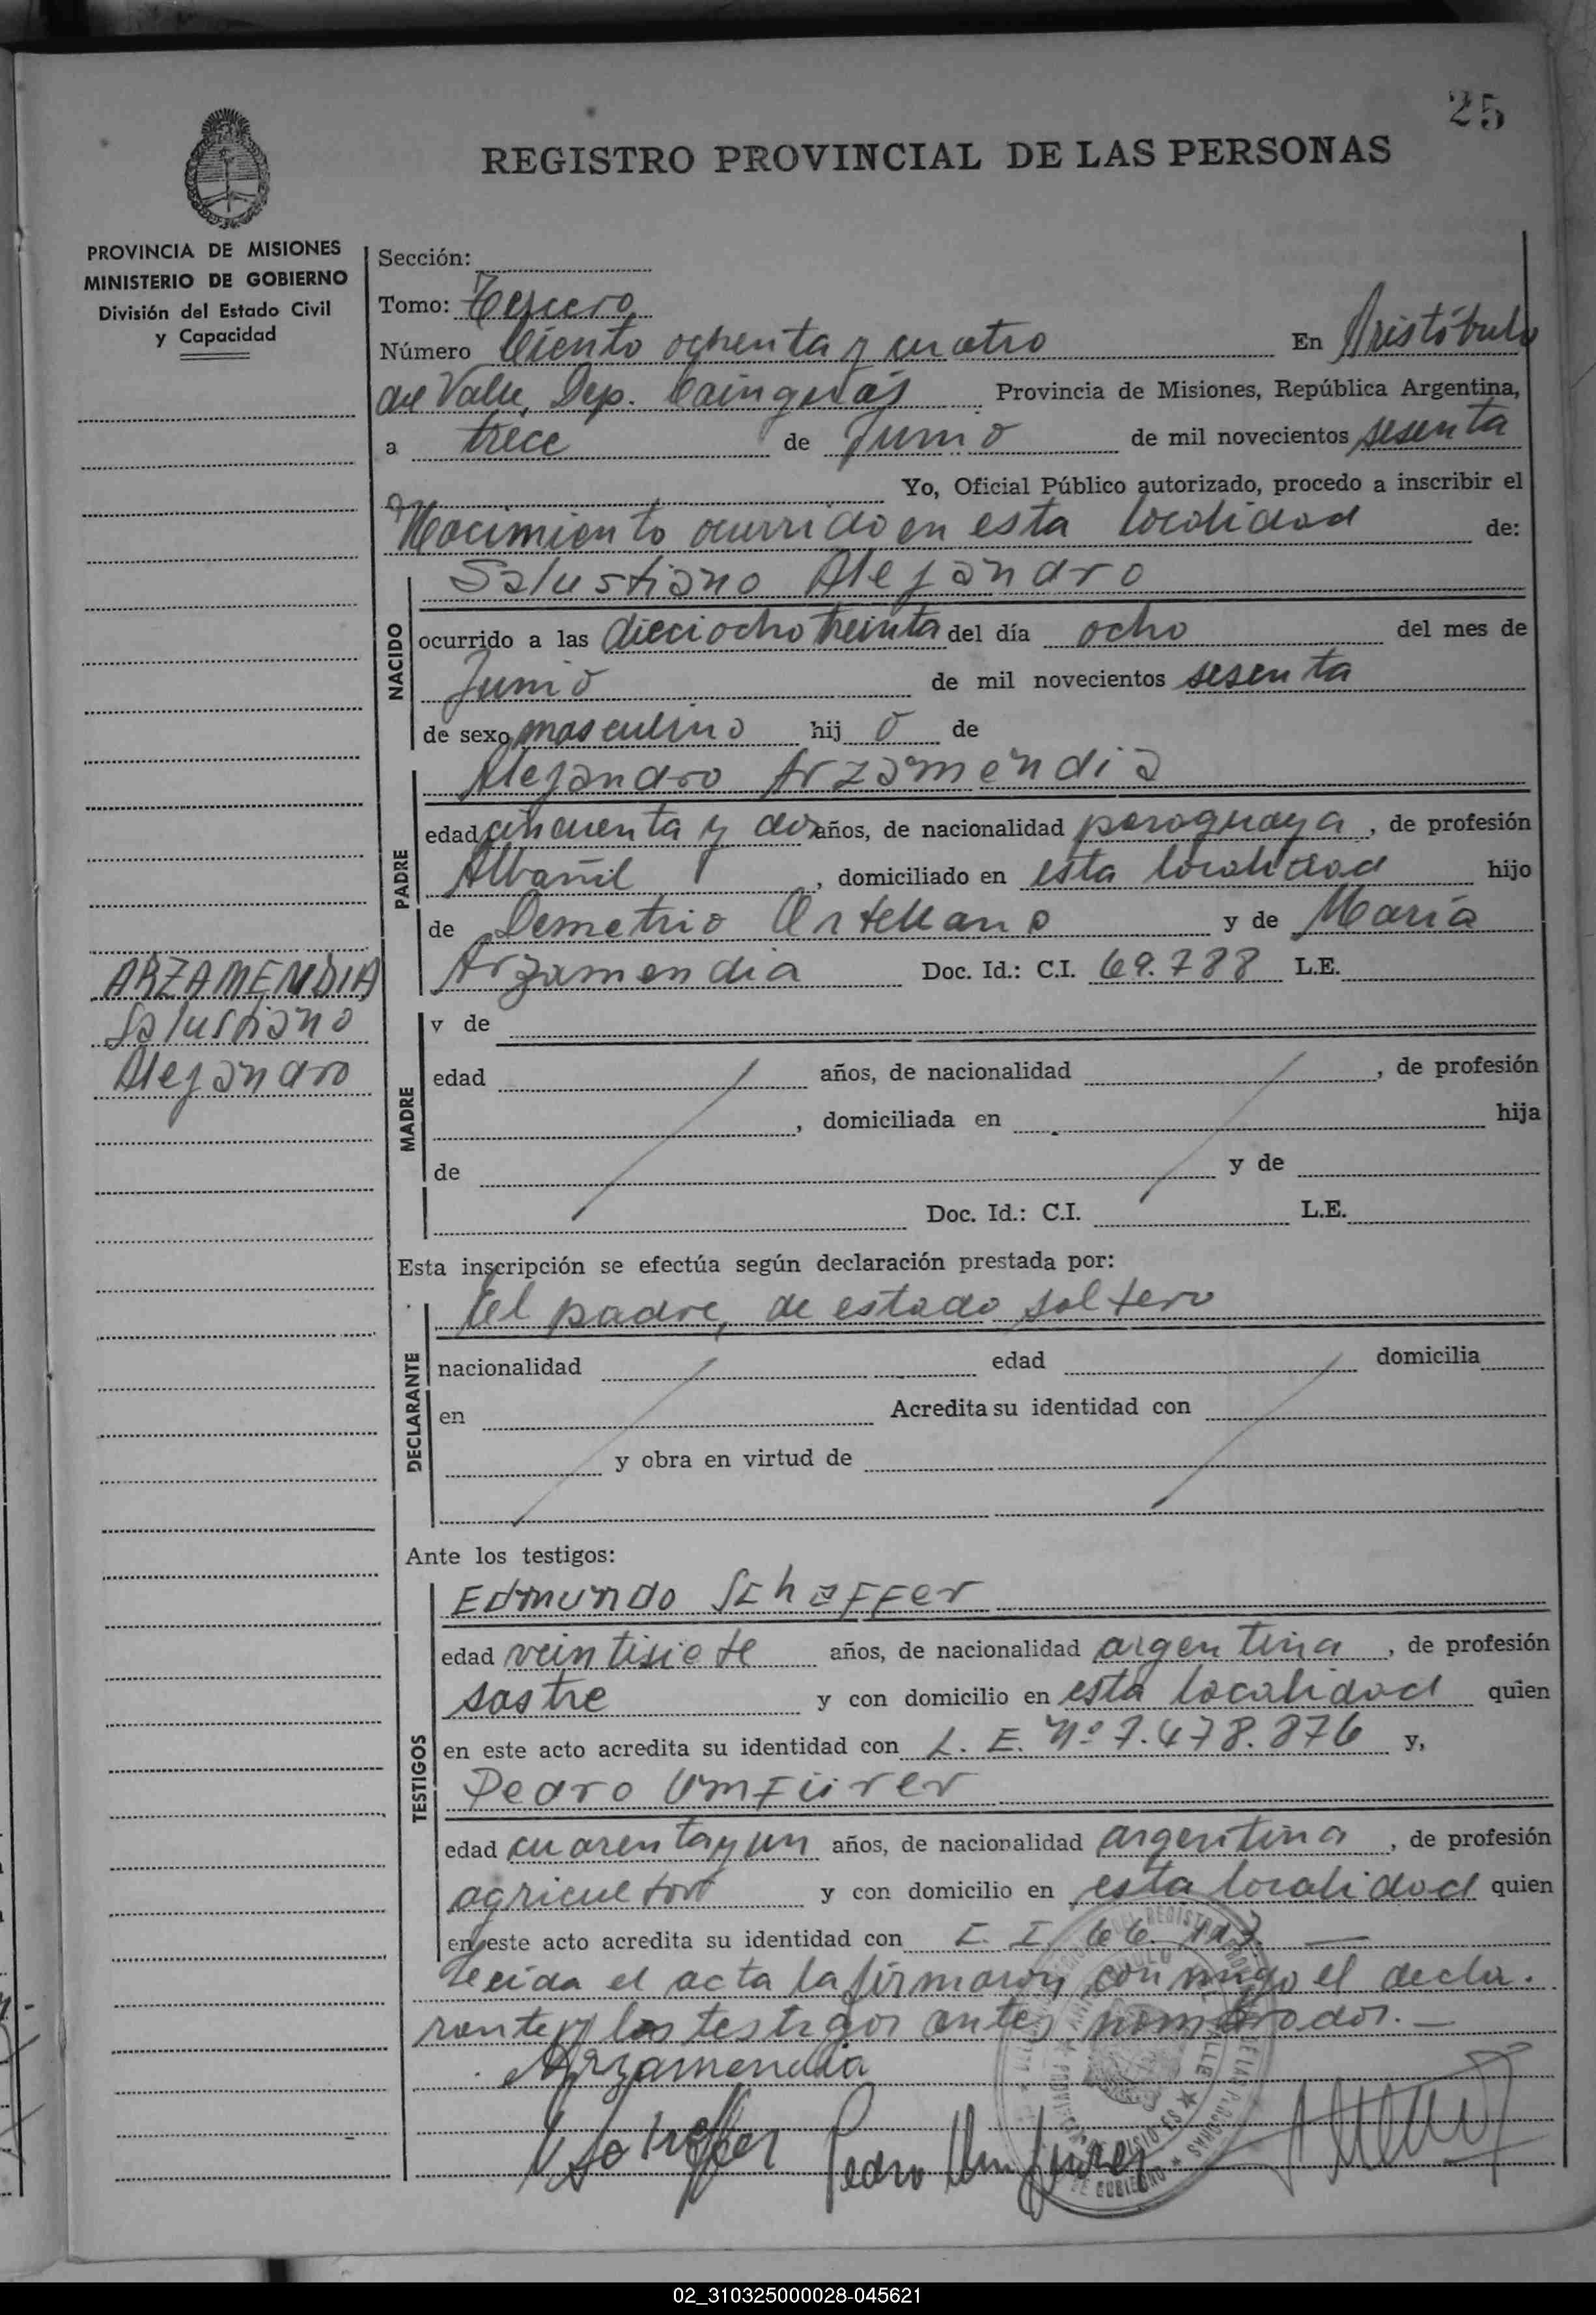 25
REGISTRO PROVINCIAL DE LAS PERSONAS
PROVINCIA DE MISIONES
MINISTERIO DE GOBIERNO
División del Estado Civil
y Capacidad
Sección:
Tomo: Tercero
Número Ciento ochenta y cuatro En Aristóbulo
del Valle, Dep. Cainguás Provincia de Misiones, República Argentina,
a trece de Junio de mil novecientos sesenta
Yo, Oficial Público autorizado, procedo a inscribir el
Nacimiento ocurrido en esta localidad de:
NACIDO
Salustiano Alejandro
ocurrido a las dieciocho treinta del día ocho del mes de
Junio de mil novecientos sesenta
de sexo masculino hij o de
PADRE
Alejandro Arzamendia
edad cincuenta y dos años, de nacionalidad paraguaya, de profesión
Albañil, domiciliado en esta localidad hijo
de Demetrio Antellano y de María
Arzamendia Doc. Id.: C.I. 69.788 L.E.
ARZAMENDIA
Salustiano
Alejandro
MADRE
y de
edad años, de nacionalidad , de profesión
, domiciliada en hija
de y de
Doc. Id.: C.I. L.E.
Esta inscripción se efectúa según declaración prestada por:
DECLARANTE
el padre, de estado soltero
nacionalidad edad domicilia
en Acredita su identidad con
y obra en virtud de
Ante los testigos:
TESTIGOS
Edmundo Schaffer
edad veintisiete años, de nacionalidad argentina, de profesión
sastre y con domicilio en esta localidad quien
en este acto acredita su identidad con L. E. Nº 7.478.876 y,
Pedro Umfürer
edad cuarenta y un años, de nacionalidad argentina, de profesión
agricultor y con domicilio en esta localidad quien
en este acto acredita su identidad con C. I. 66.117. —
Leida el acta la firmaron conmigo el decla-
rante y los testigos antes nombrados. —
Arzamendia
Schaffer Pedro Umfurer
02_310325000028-045621